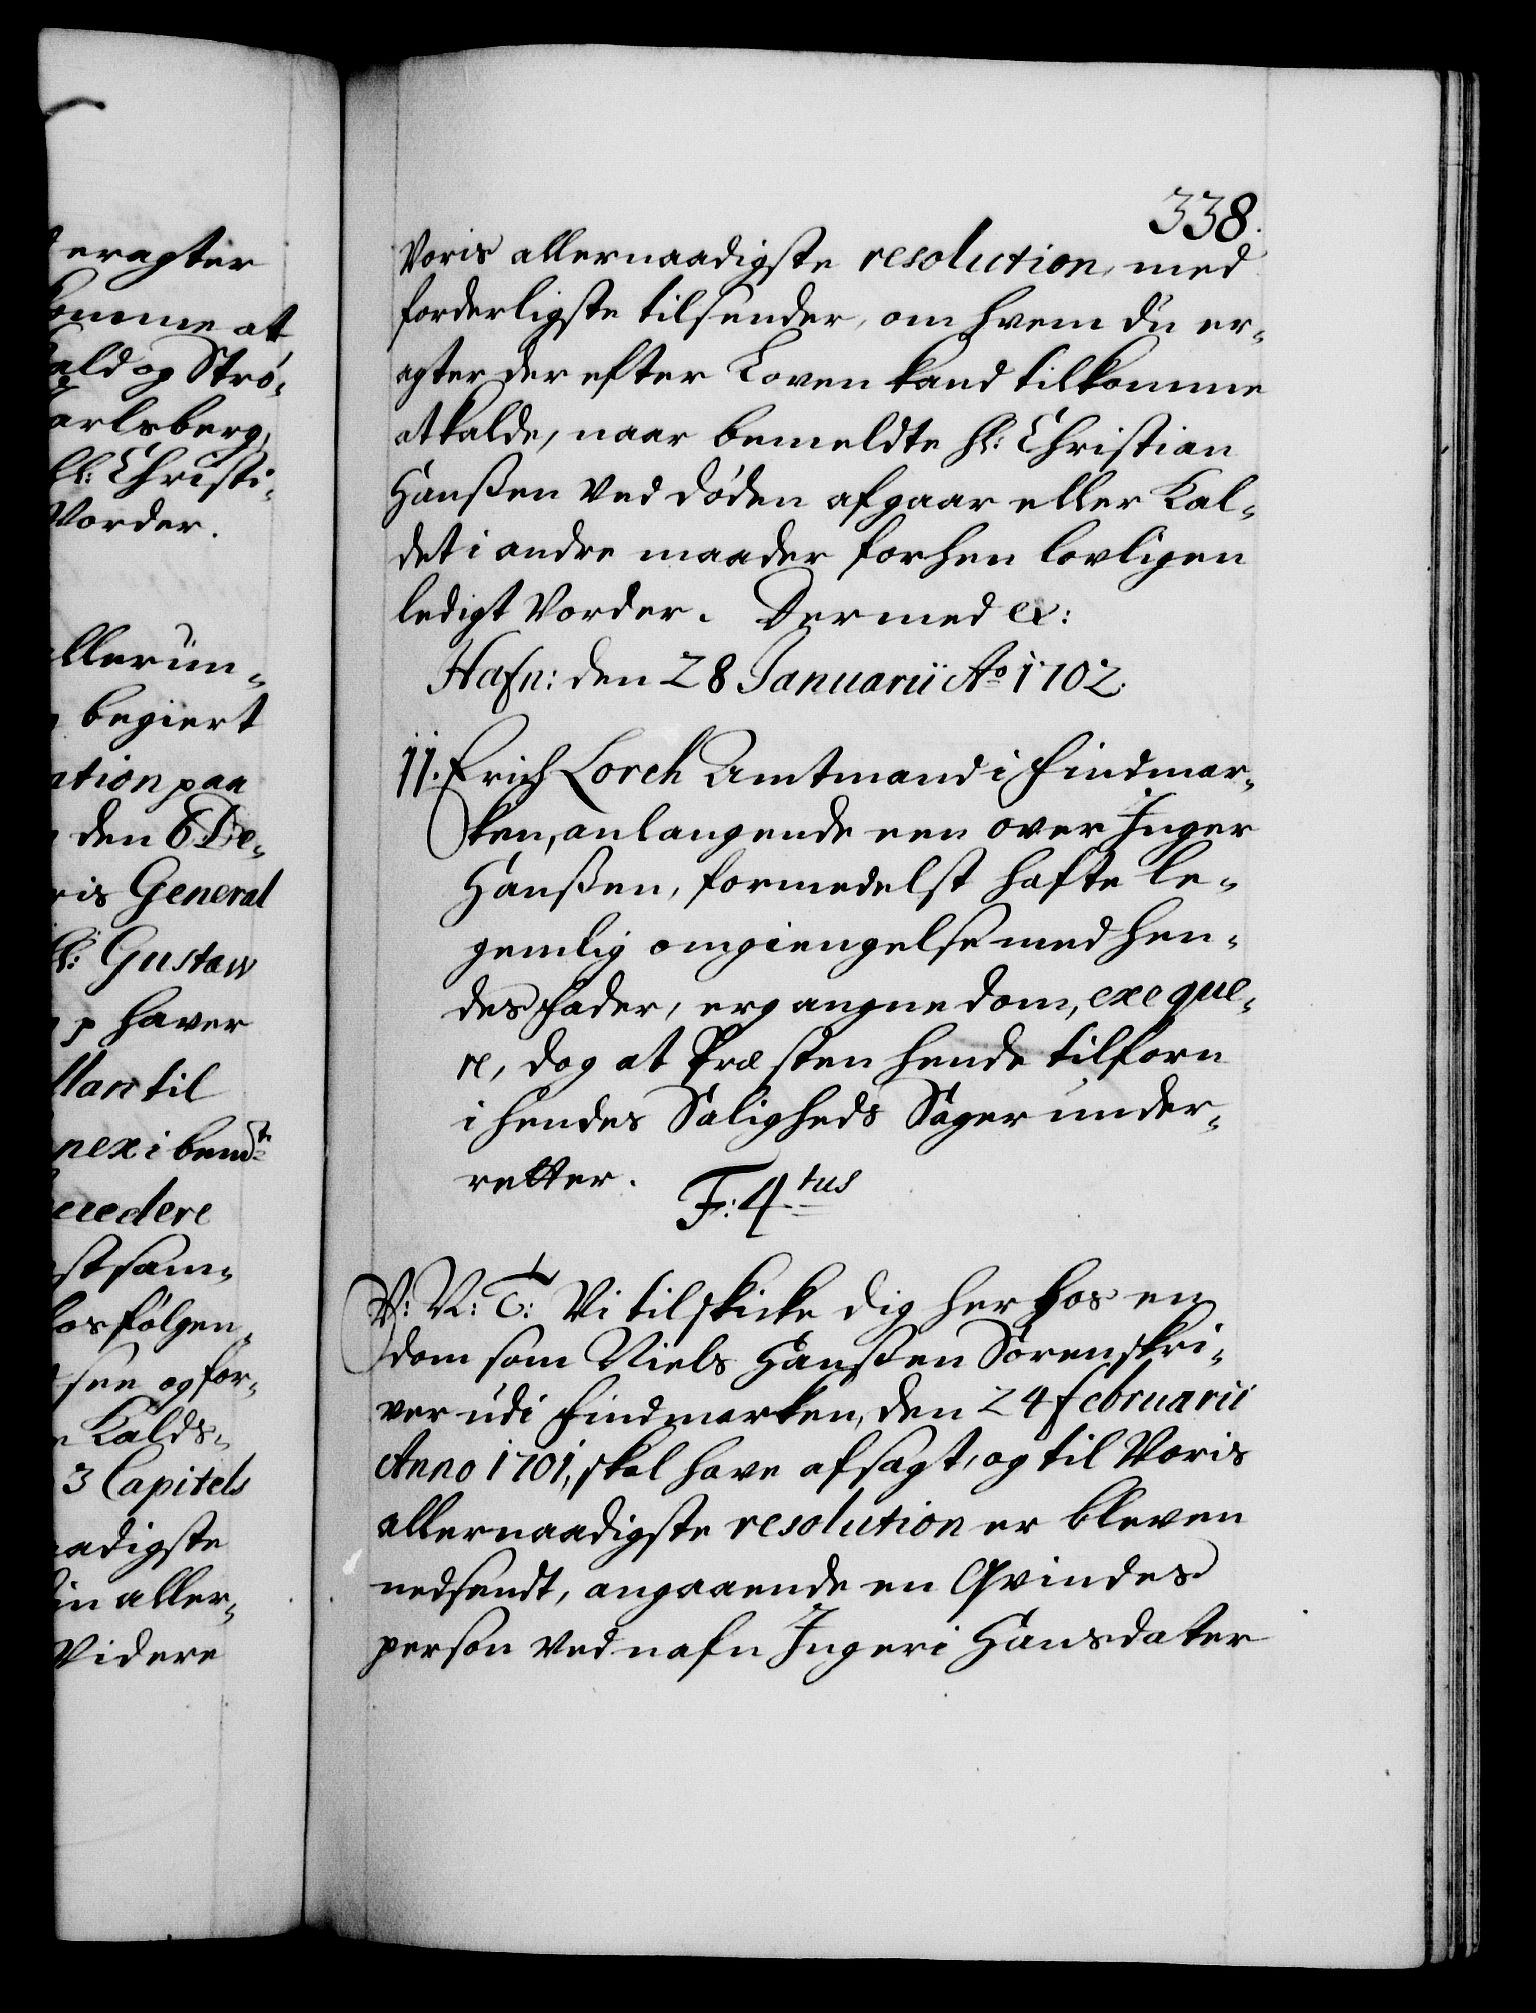 eragter
komme at
ald og Strö,
arlsberg,
hl: Christi,
Vorder.
llerun,
begiert
ation paa
den 6 De,
ris General
hl: Gustaw
p haver
Man til
nex i bemte
succedere
st sam,
hos følgen,
see og for,
Kalds,
3 Capitels
naadigste
din aller,
Videre
338.
Voris allernaadigste resolution, med
forderligste tilsender, om hvem du er,
agter der efter Loven kand tilkomme
at kalde, naar bemeldte hl: Christian
Hanßen ved döden afgaar eller Kal,
det i andre maader forhen lovligen
ledigt vorder. Dermed ex:
Hafn: den 28 Januarii Ao 1702.
11. Erich Lorch Amtmand i Findmar,
ken, anlangende een over Inger
Hanßen, formedelst hafte le,
gemlig omgiengelse med hen,
des Fader, ergangne dom, exeque,
re, dog at Præsten hende tilforn
i hendes Saligheds Sager under,
retter.
F: 4tus
V: V: T: Vi tilskicke dig her hos en
dom som Niels Hanßen Sorenskri,
ver udi Findmarken, den 24 Februarii
Anno 1701, skal have afsagt, og til Voris
allernaadigste resolution er bleven
nedsendt, angaaende en Qvindes
person ved nafn Ingeri Hansdatter